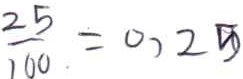 25/100 = 0,25